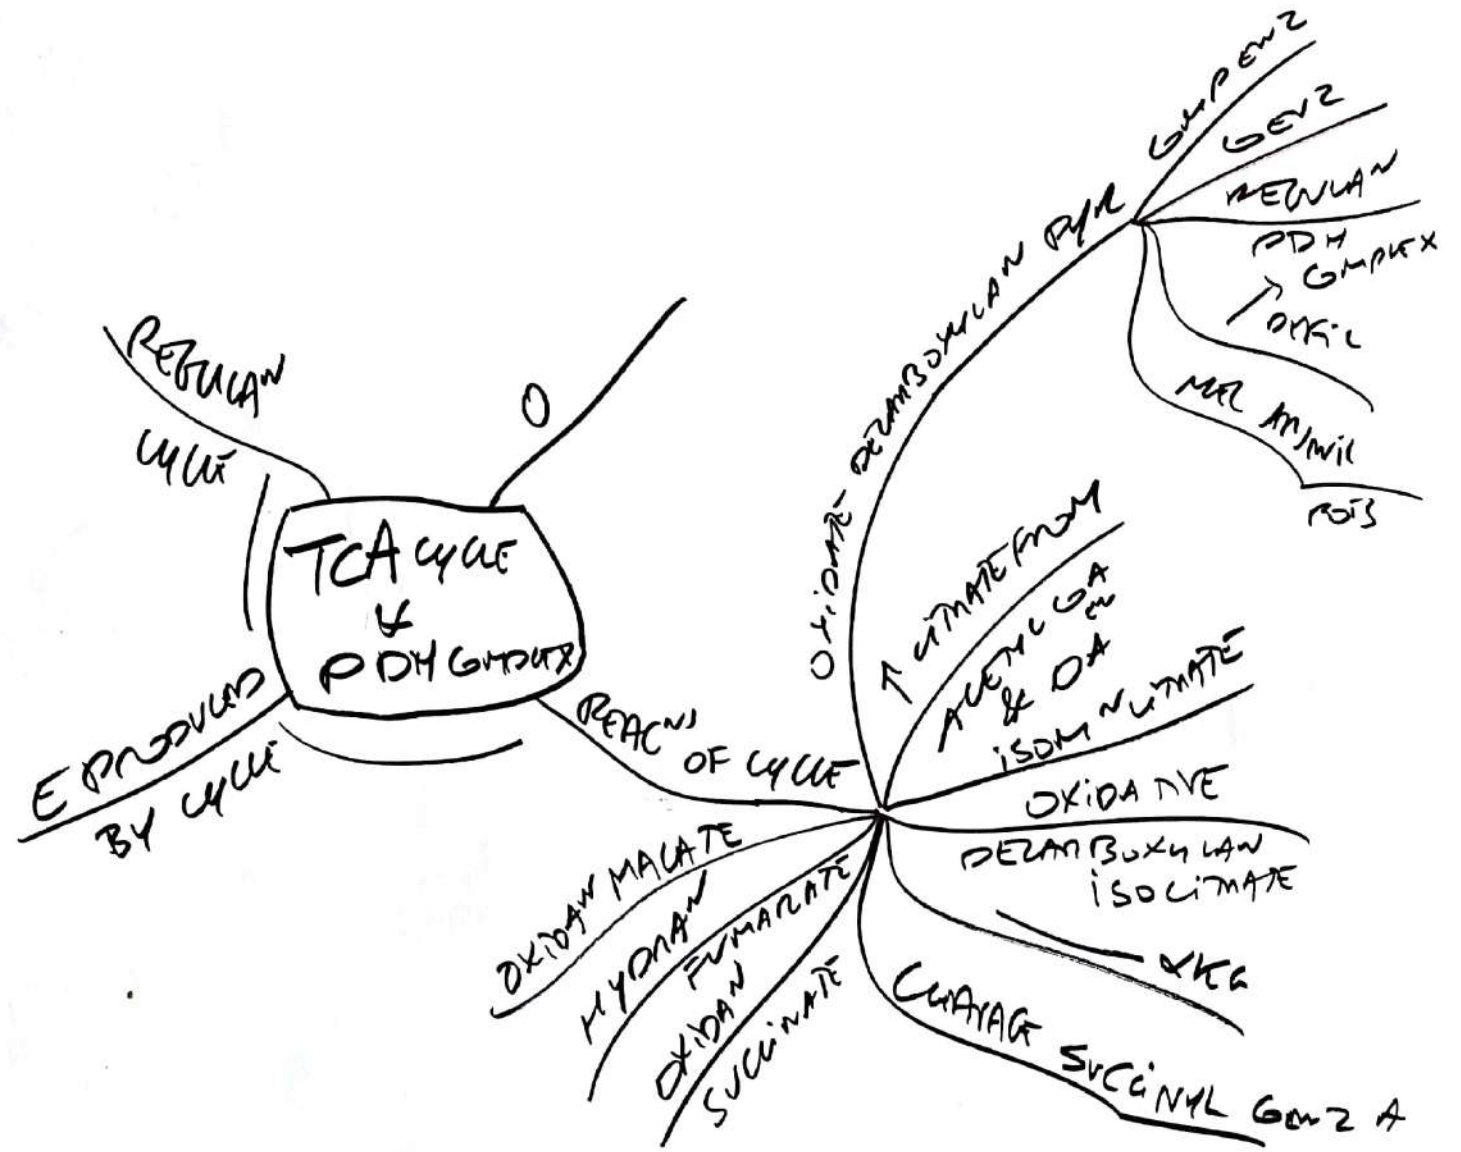 TCA CYCLE
&
PDH COMPLEX
O
REGULAN
CYCLE
E PRODUCED
BY CYCLE
REACNS
OF CYCLE
OXIDATE DECARBOXYLAN PYR
COMP ENZ
COENZ
REGULAN
PDH
COMPLEX
DEFIC
POIS
↑ CITRATE FROM
ACETYL COA
& OA
ISOM N CITRATE
OXIDATIVE
DECARBOXYLAN
ISOCITRATE
αKG
CLEAVAGE SUCCINYL COENZ A
OXIDAN
SUCCINATE
HYDRAN
FUMARATE
OXIDAN MALATE